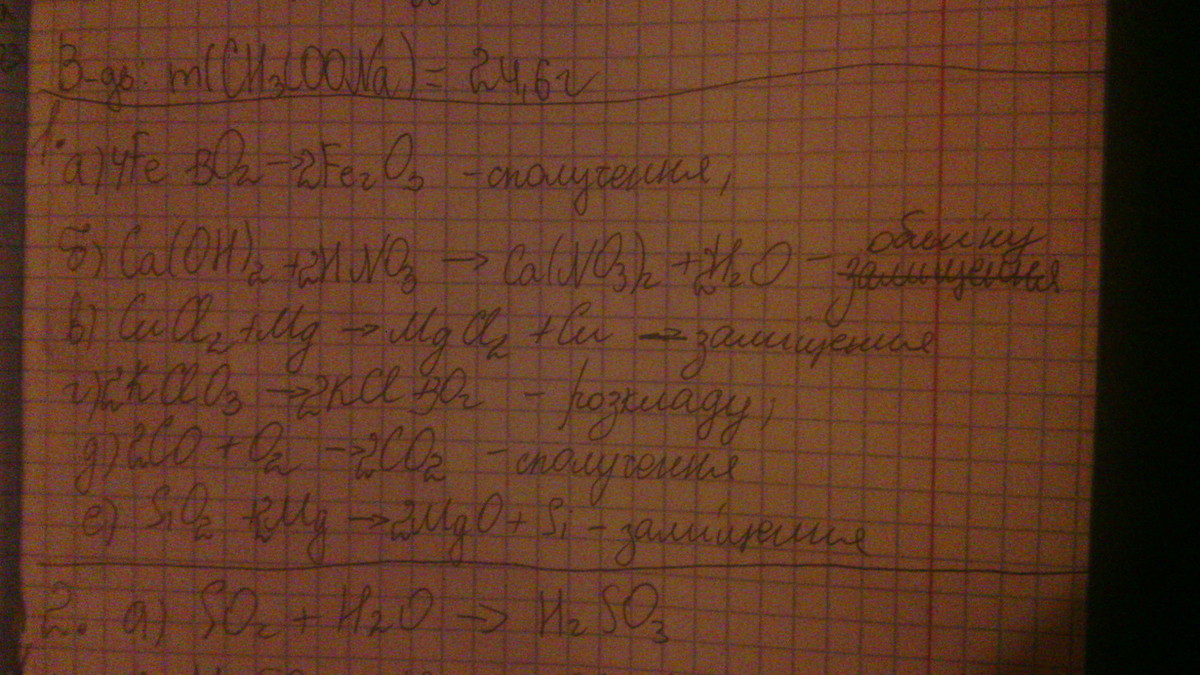 В-дь: m(CH₃COONa) = 24,6г
1. а) 4Fe + 3O₂ → 2Fe₂O₃ - сполучення,
б) Ca(OH)₂ + 2HNO₃ → Ca(NO₃)₂ + 2H₂O - обміну
в) CuCl₂ + Mg → MgCl₂ + Cu - заміщення
г) 2KClO₃ → 2KCl + 3O₂ - розкладу,
д) 2CO + O₂ → 2CO₂ - сполучення
е) SiO₂ + 2Mg → 2MgO + Si - заміщення
2. а) SO₂ + H₂O → H₂SO₃